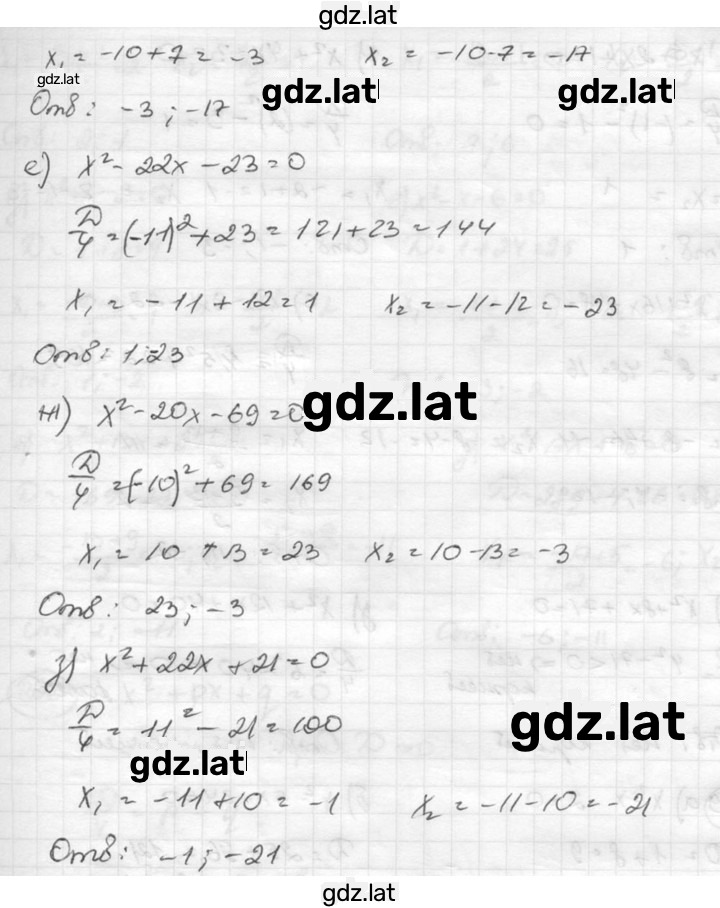 gdz.lat
x₁ = -10+7 = -3    x₂ = -10-7 = -17
gdz.lat
gdz.lat    gdz.lat
Отв: -3; -17
е) x² - 22x - 23 = 0
Д/4 = (-11)² + 23 = 121 + 23 = 144
x₁ = -11 + 12 = 1    x₂ = -11 - 12 = -23
Отв: 1; -23
ж) x² - 20x - 69 = 0
gdz.lat
Д/4 = (-10)² + 69 = 169
x₁ = 10 + 13 = 23    x₂ = 10 - 13 = -3
Отв: 23; -3
з) x² + 22x + 21 = 0
Д/4 = 11² - 21 = 100
gdz.lat
gdz.lat
x₁ = -11 + 10 = -1    x₂ = -11 - 10 = -21
Отв: -1; -21
gdz.lat